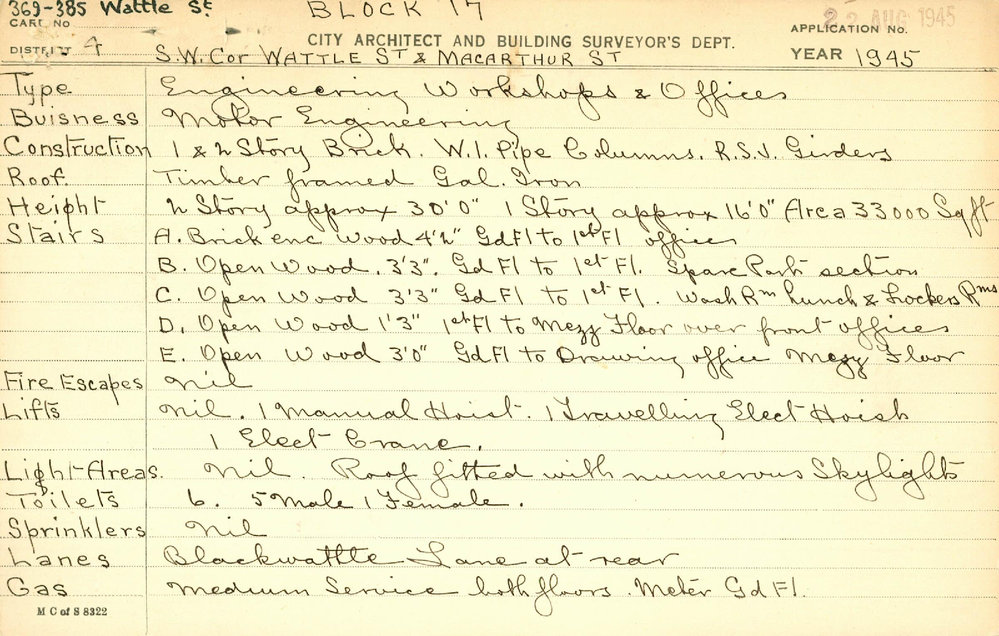 369-385 Wattle St. BLOCK 17 22 AUG 1945
CARD No APPLICATION No.
CITY ARCHITECT AND BUILDING SURVEYOR'S DEPT.
DISTRICT 4 S.W. Cor WATTLE ST & MACARTHUR ST YEAR 1945
Type Engineering Workshops & Offices
Buisness Motor Engineering
Construction 1 & 2 Story Brick. W.I. Pipe Columns. R.S.J. Girders
Roof. Timber framed Gal. Iron
Height 2 Story approx 30'0" 1 Story approx 16'0" Area 33000 Sq ft
Stairs A. Brick enc Wood 4'2" Gd Fl to 1st Fl offices
B. Open Wood. 3'3". Gd Fl to 1st Fl. Spare Parts section
C. Open Wood 3'3" Gd Fl to 1st Fl. Wash Rm Lunch & Lockers Rms
D. Open Wood 1'3" 1st Fl to Mezz Floor over front offices
E. Open Wood 3'0" Gd Fl to Drawing office Mezz Floor
Fire Escapes Nil
Lifts Nil. 1 Manual Hoist. 1 Travelling Elect Hoist
1 Elect Crane.
Light-Areas. Nil. Roof fitted with numerous Skylights
Toilets 6. 5 Male 1 Female.
Sprinklers Nil
Lanes Blackwattle Lane at rear
Gas Medium Service both floors. Meter Gd Fl.
M C of S 8322